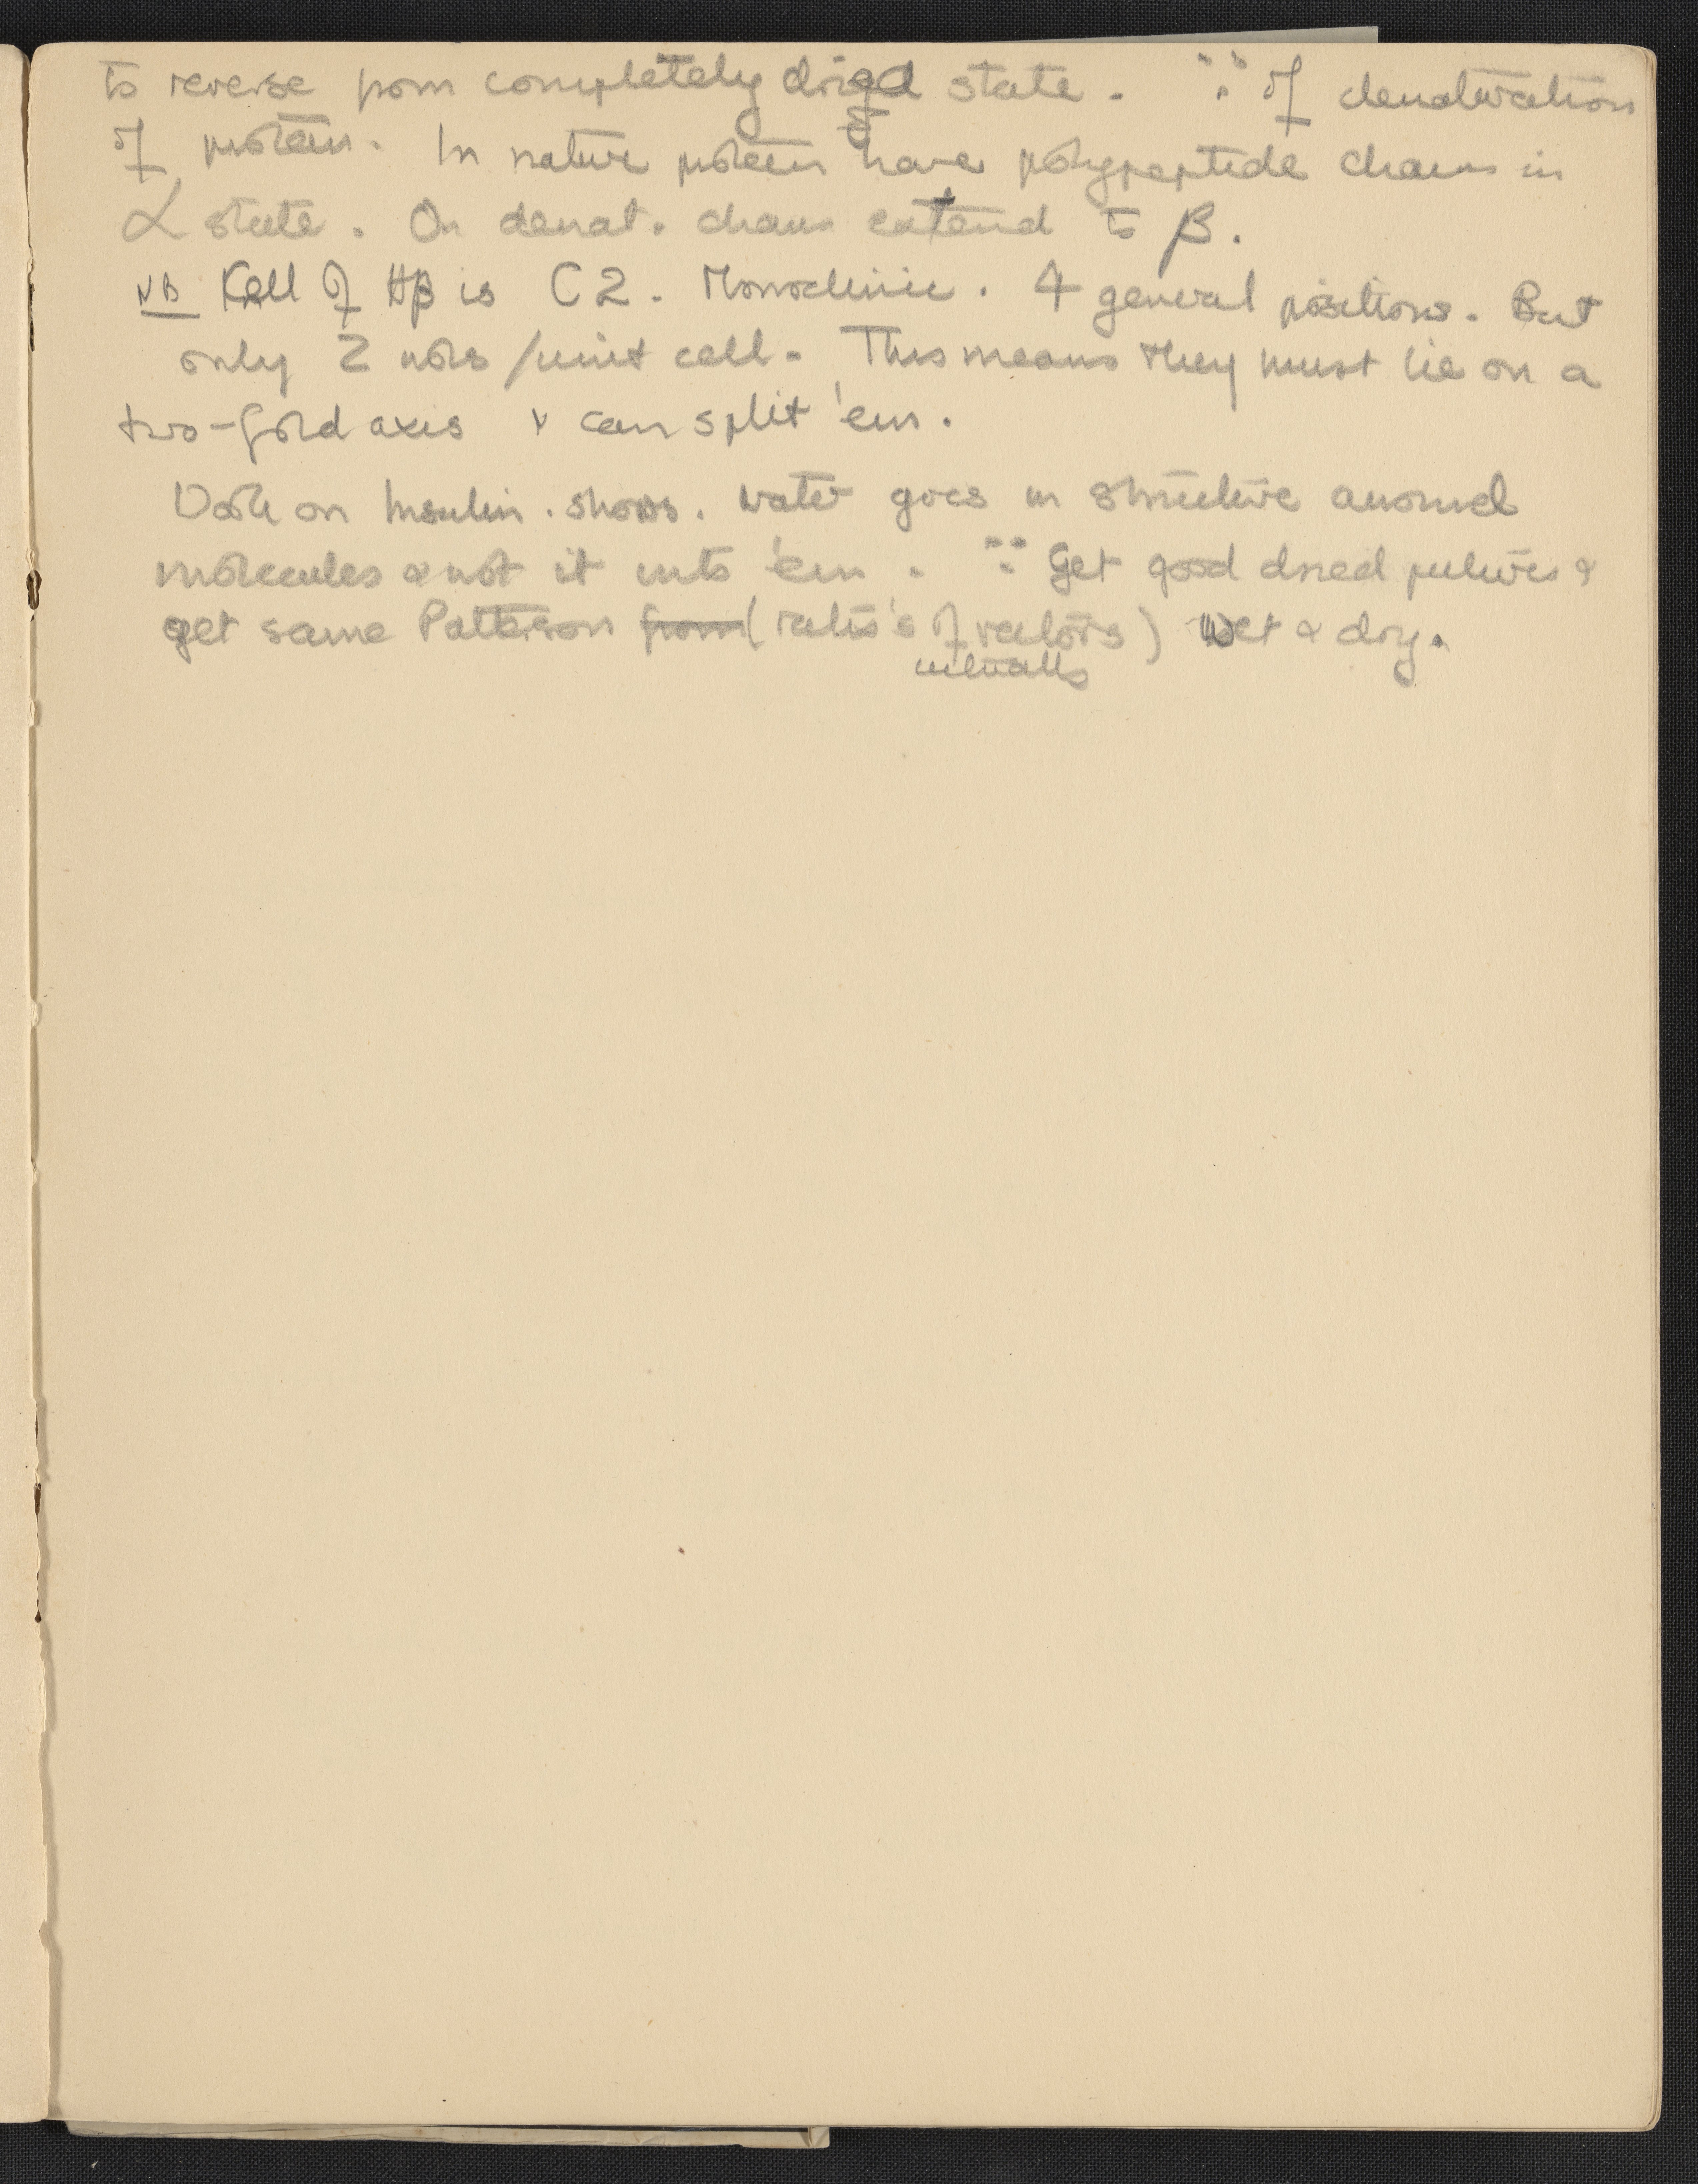 to reverse from completely dried state. ∵ of denaturation
of protein. In nature protein have polypeptide chains in
α state. On denat. chains extend to β.
NB Kell of Hβ is C2. Monoclinic. 4 general positions. But
only 2 mols/unit cell. This means they must lie on a
two-fold axis & can split 'em.
Work on Insulin. shows. water goes in structure around
molecules & not it into 'em. ∵ Get good dried pictures &
get same Patterson from (ratio's of vectors) wet & dry.
intervalls